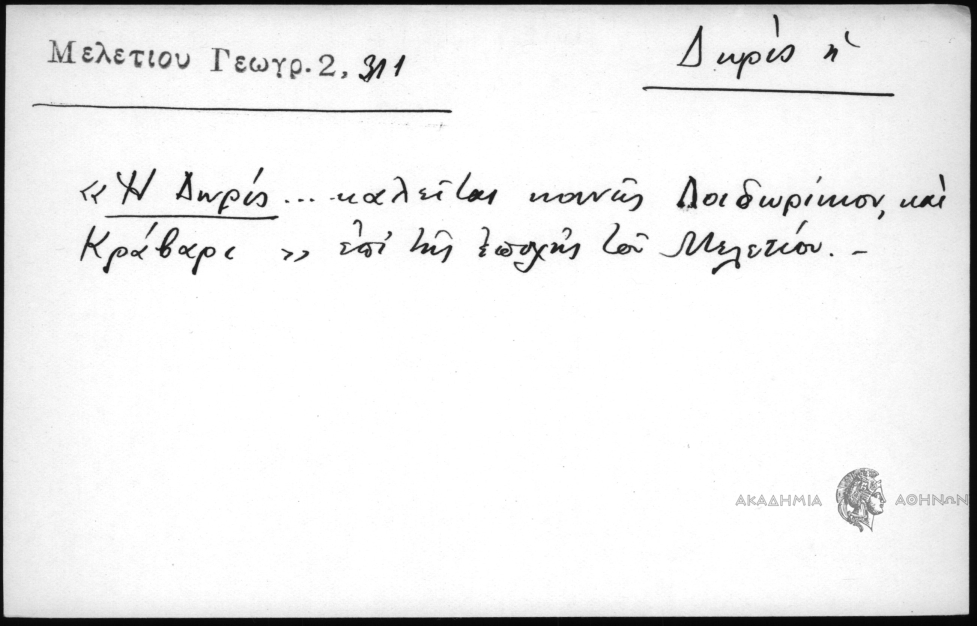 Μελετιου Γεωγρ. 2, 311
Δωρὶς ἡ
« Ἡ Δωρὶς ... καλεῖται κοινῶς Λοιδωρίκιον, καὶ
Κράβαρι » ἐπὶ τῆς ἐποχῆς τοῦ Μελετίου. –
ΑΚΑΔΗΜΙΑ ΑΘΗΝΩΝ